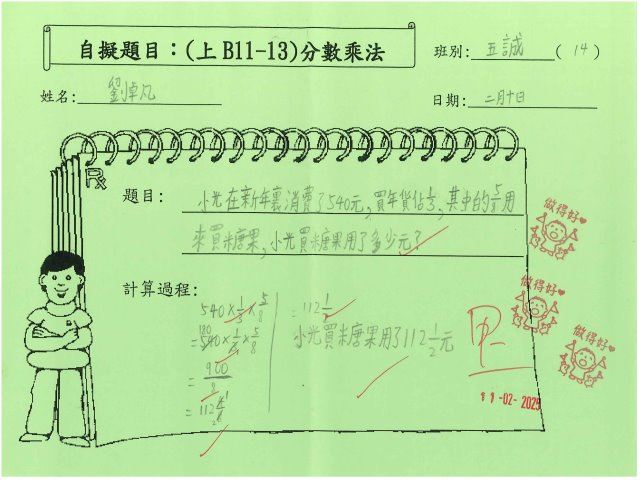 自擬題目：(上 B11-13)分數乘法
班別: 五誠 ( 14 )
姓名: 劉倬凡
日期: 二月十日
題目: 小光在新年裏消費了540元,買年貨佔1/3,其中的5/8用
來買糖果,小光買糖果用了多少元?
計算過程:
540×1/3×5/8
=540×1/3×5/8
180
=900/8
=112 4/8
=112 1/2
小光買糖果用了112 1/2元
做得好
做得好
做得好
11-02-2025